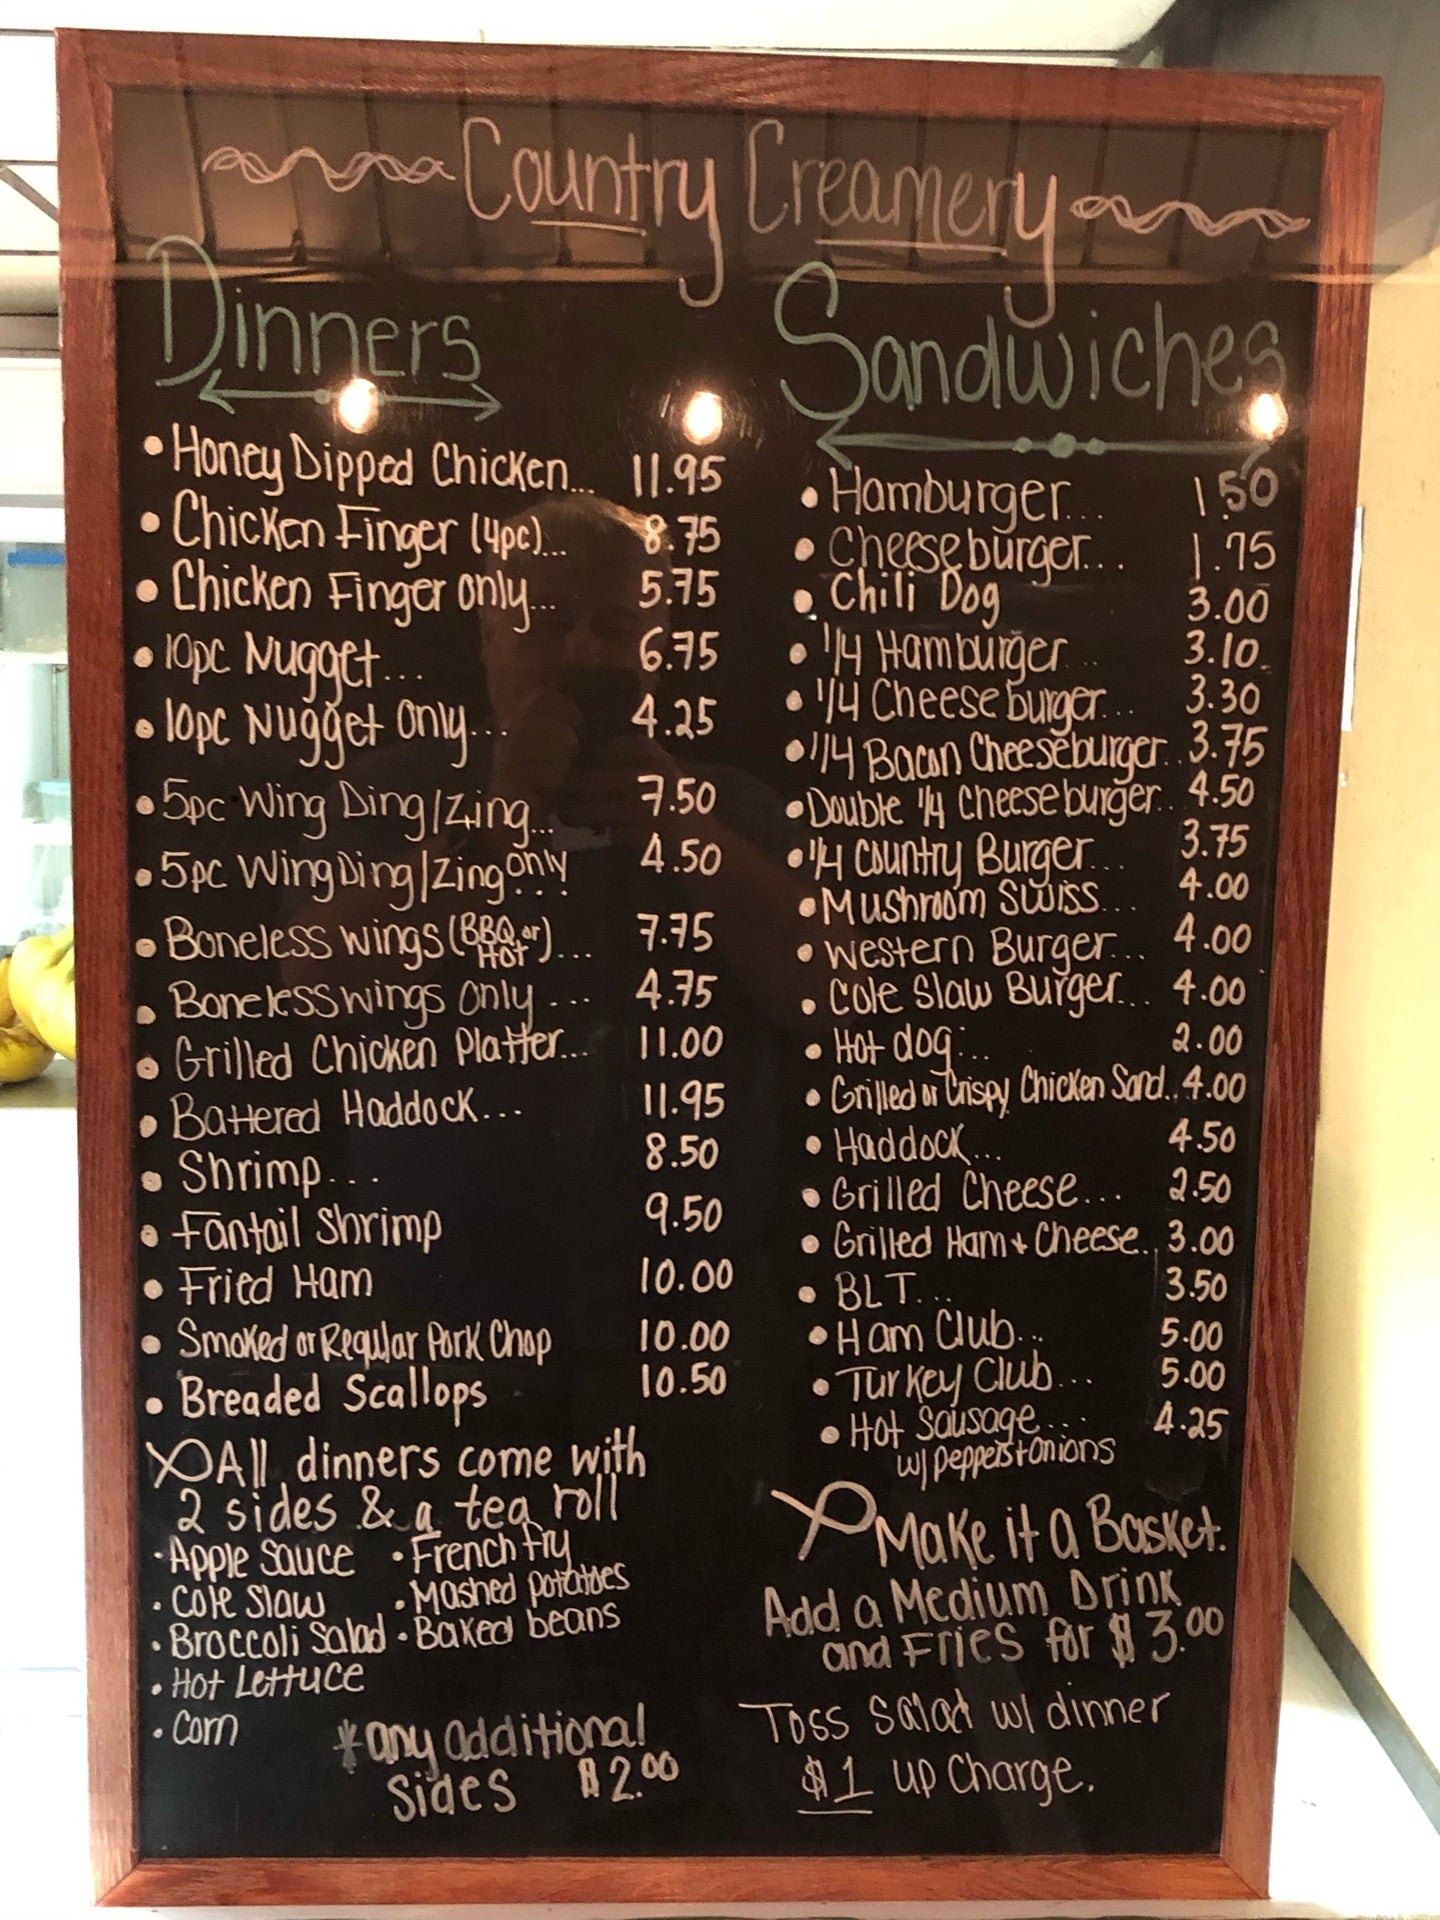 Country Creamery
Dinners
• Honey Dipped Chicken... 11.95
• Chicken Finger (4pc)... 8.75
• Chicken Finger only... 5.75
• 10pc Nugget... 6.75
• 10pc Nugget only... 4.25
• 5pc Wing Ding/Zing... 7.50
• 5pc Wing Ding/Zing only... 4.50
• Boneless wings (BBQ or HOT)... 7.75
• Boneless wings only... 4.75
• Grilled Chicken Platter... 11.00
• Battered Haddock... 11.95
• Shrimp... 8.50
• Fantail Shrimp 9.50
• Fried Ham 10.00
• Smoked or Regular Pork Chop 10.00
• Breaded Scallops 10.50
All dinners come with
2 sides & a tea roll
• Apple Sauce • French Fry
• Cole Slaw • Mashed potatoes
• Broccoli Salad • Baked beans
• Hot Lettuce
• Corn
*any additional
sides $2.00
Sandwiches
• Hamburger... 1.50
• Cheeseburger... 1.75
• Chili Dog 3.00
• 1/4 Hamburger... 3.10
• 1/4 Cheeseburger... 3.30
• 1/4 Bacon Cheeseburger.. 3.75
• Double 1/4 Cheeseburger.. 4.50
• 1/4 Country Burger... 3.75
• Mushroom Swiss... 4.00
• Western Burger... 4.00
• Cole Slaw Burger... 4.00
• Hot dog... 2.00
• Grilled or Crispy Chicken Sand.. 4.00
• Haddock... 4.50
• Grilled Cheese... 2.50
• Grilled Ham + Cheese.. 3.00
• BLT... 3.50
• Ham Club... 5.00
• Turkey Club... 5.00
• Hot Sausage... 4.25
w/ peppers + onions
Make it a Basket.
Add a Medium Drink
and Fries for $3.00
Toss Salad w/ dinner
$1 up charge.